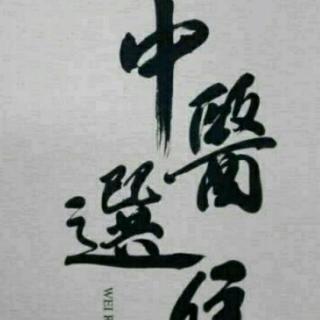 中醫
選
WEI